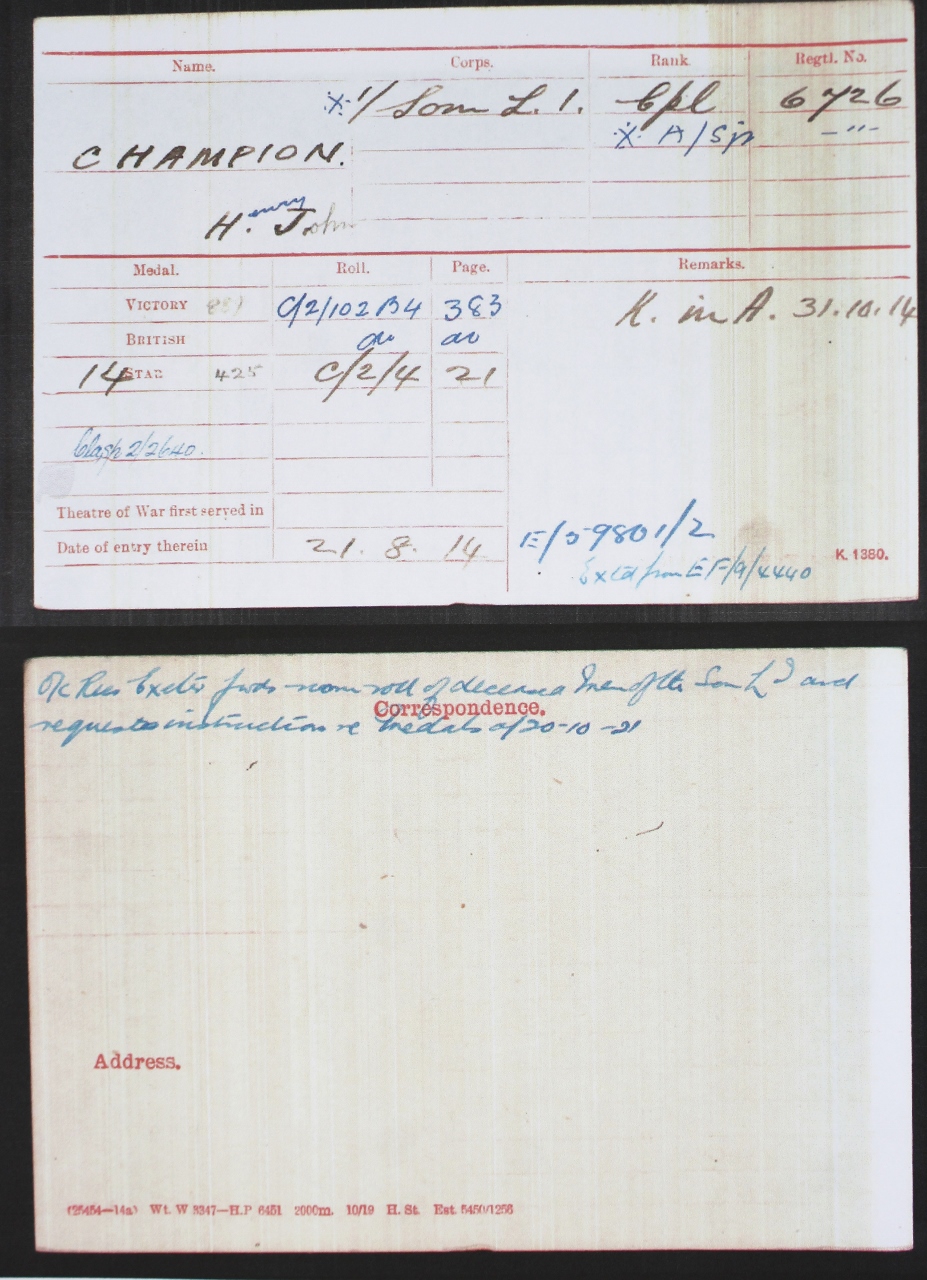 Name. Corps. Rank Regtl. No.
x 1/ Som L. I. Cpl 6726
x A/Sjt —"—
CHAMPION.
Henry John
Medal. Roll. Page. Remarks.
VICTORY C/2/102 B4 383 K. in A. 31.10.14
BRITISH do do
14 STAR 425 C/2/4 21
Clasp 2/2640.
Theatre of War first served in
Date of entry therein 21. 8. 14 E/59801/2
K. 1380.
Extd from EF/9/4440
O/c Recs Exeter fwds nom roll of deceased men of the Som L I and
Correspondence.
requests instruction re medals 20-10-21
Address.
(25454—14a) Wt. W 3347—H.P 6451 2000m. 10/19 H. St. Est. 5450/1256